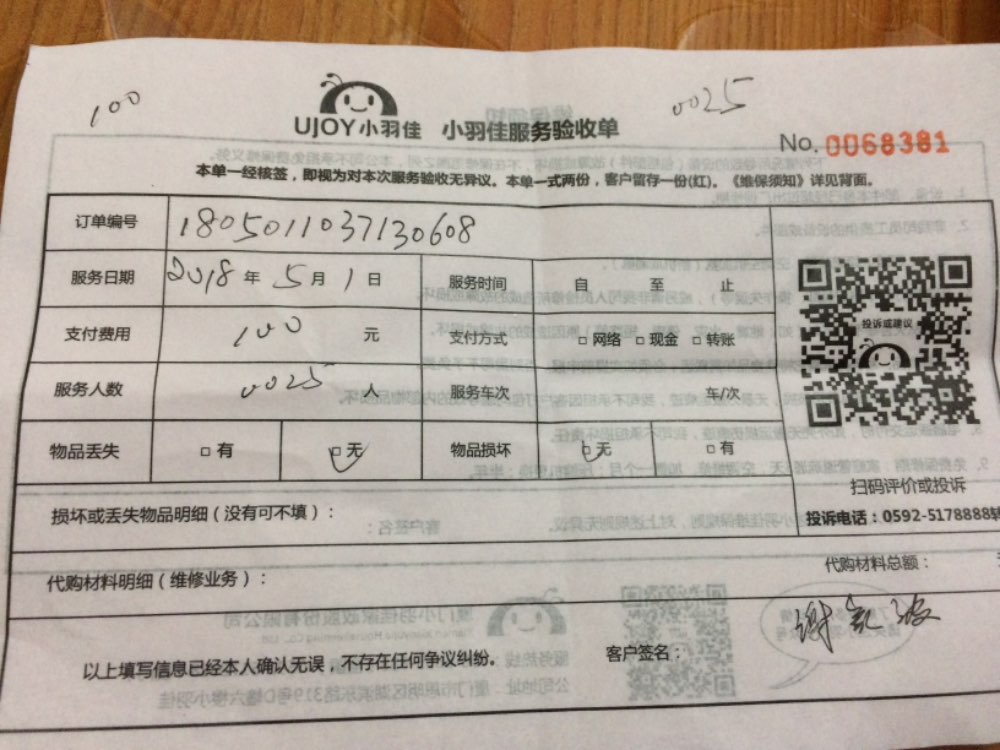 100
0025
UJOY小羽佳 小羽佳服务验收单
No. 0068381
本单一经核签，即视为对本次服务验收无异议。本单一式两份，客户留存一份(红)。《维保须知》详见背面。
订单编号 1805011037130608
服务日期 2018 年 5 月 1 日 服务时间 自 至 止
支付费用 100 元 支付方式 □ 网络 □ 现金 □ 转账
投诉或建议
服务人数 0025 人 服务车次 车/次
物品丢失 □ 有 □ 无 物品损坏 □ 无 □ 有
扫码评价或投诉
损坏或丢失物品明细（没有可不填）：
投诉电话：0592-5178888转
代购材料明细（维修业务）：
代购材料总额：
以上填写信息已经本人确认无误，不存在任何争议纠纷。 客户签名：